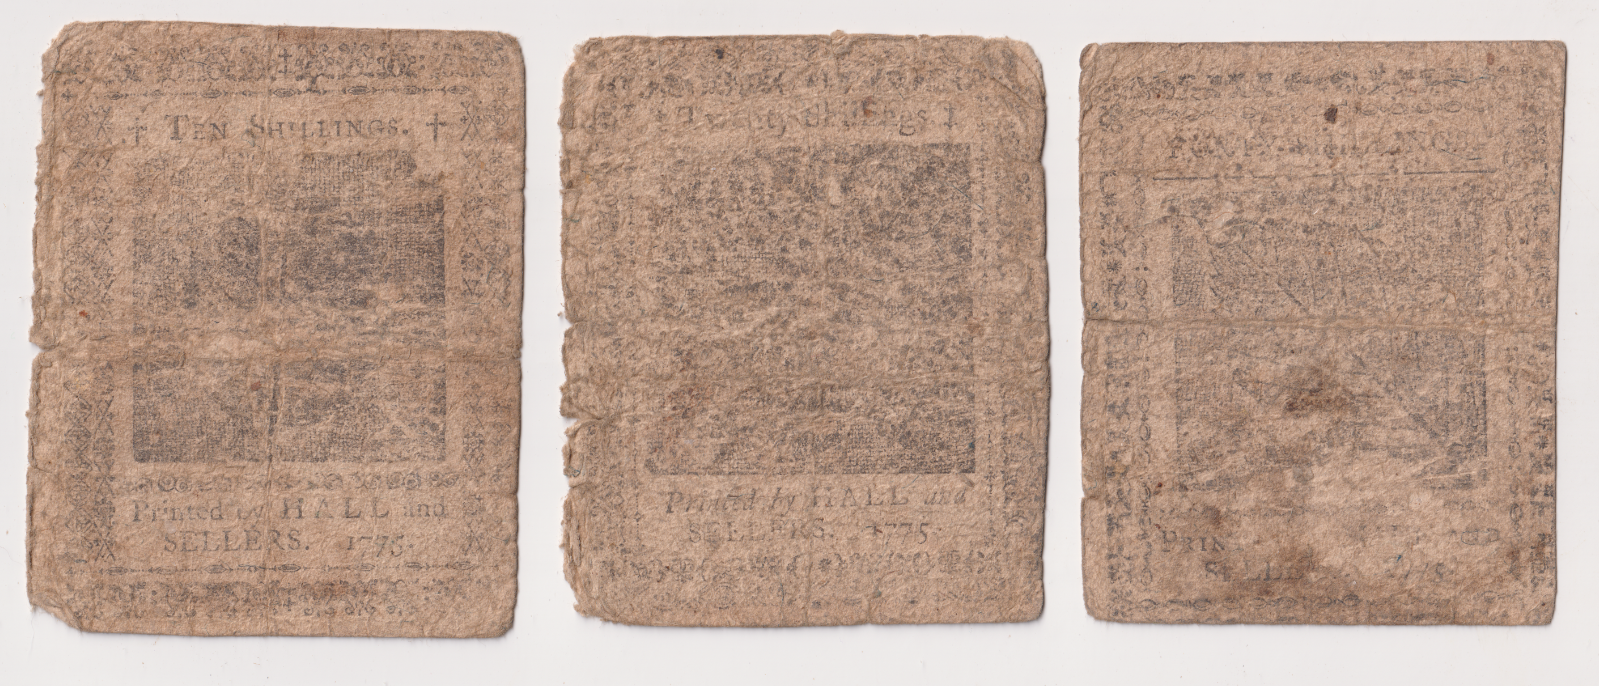 TEN SHILLINGS.
Printed by HALL and
SELLERS. 1775.
Twenty Shillings
Printed by HALL and
SELLERS. 1775.
SHILLINGS
1775.